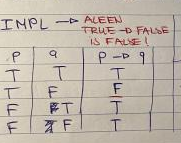 IMPL —▷ ALEEN
TRUE -▷ FALSE
IS FALSE!
P q P -▷ q
T T T
T F F
F T T
F F T